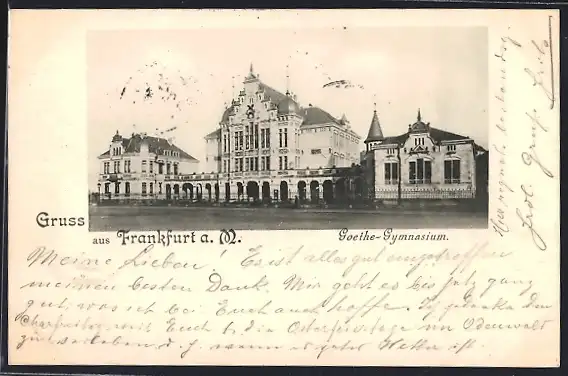 Gruss
aus Frankfurt a. M.
Goethe-Gymnasium.
Meine Lieben! Es ist alles gut eingetroffen
meinen besten Dank. Mir geht es bis jetz ganz
gut, was ich bei Euch auch hoffe. Ich gedenke den
mit Euch b. die Osterfeiertage im Odenwald
zu verleben d. h. wenn es gutes Wetter ist.
Gruss